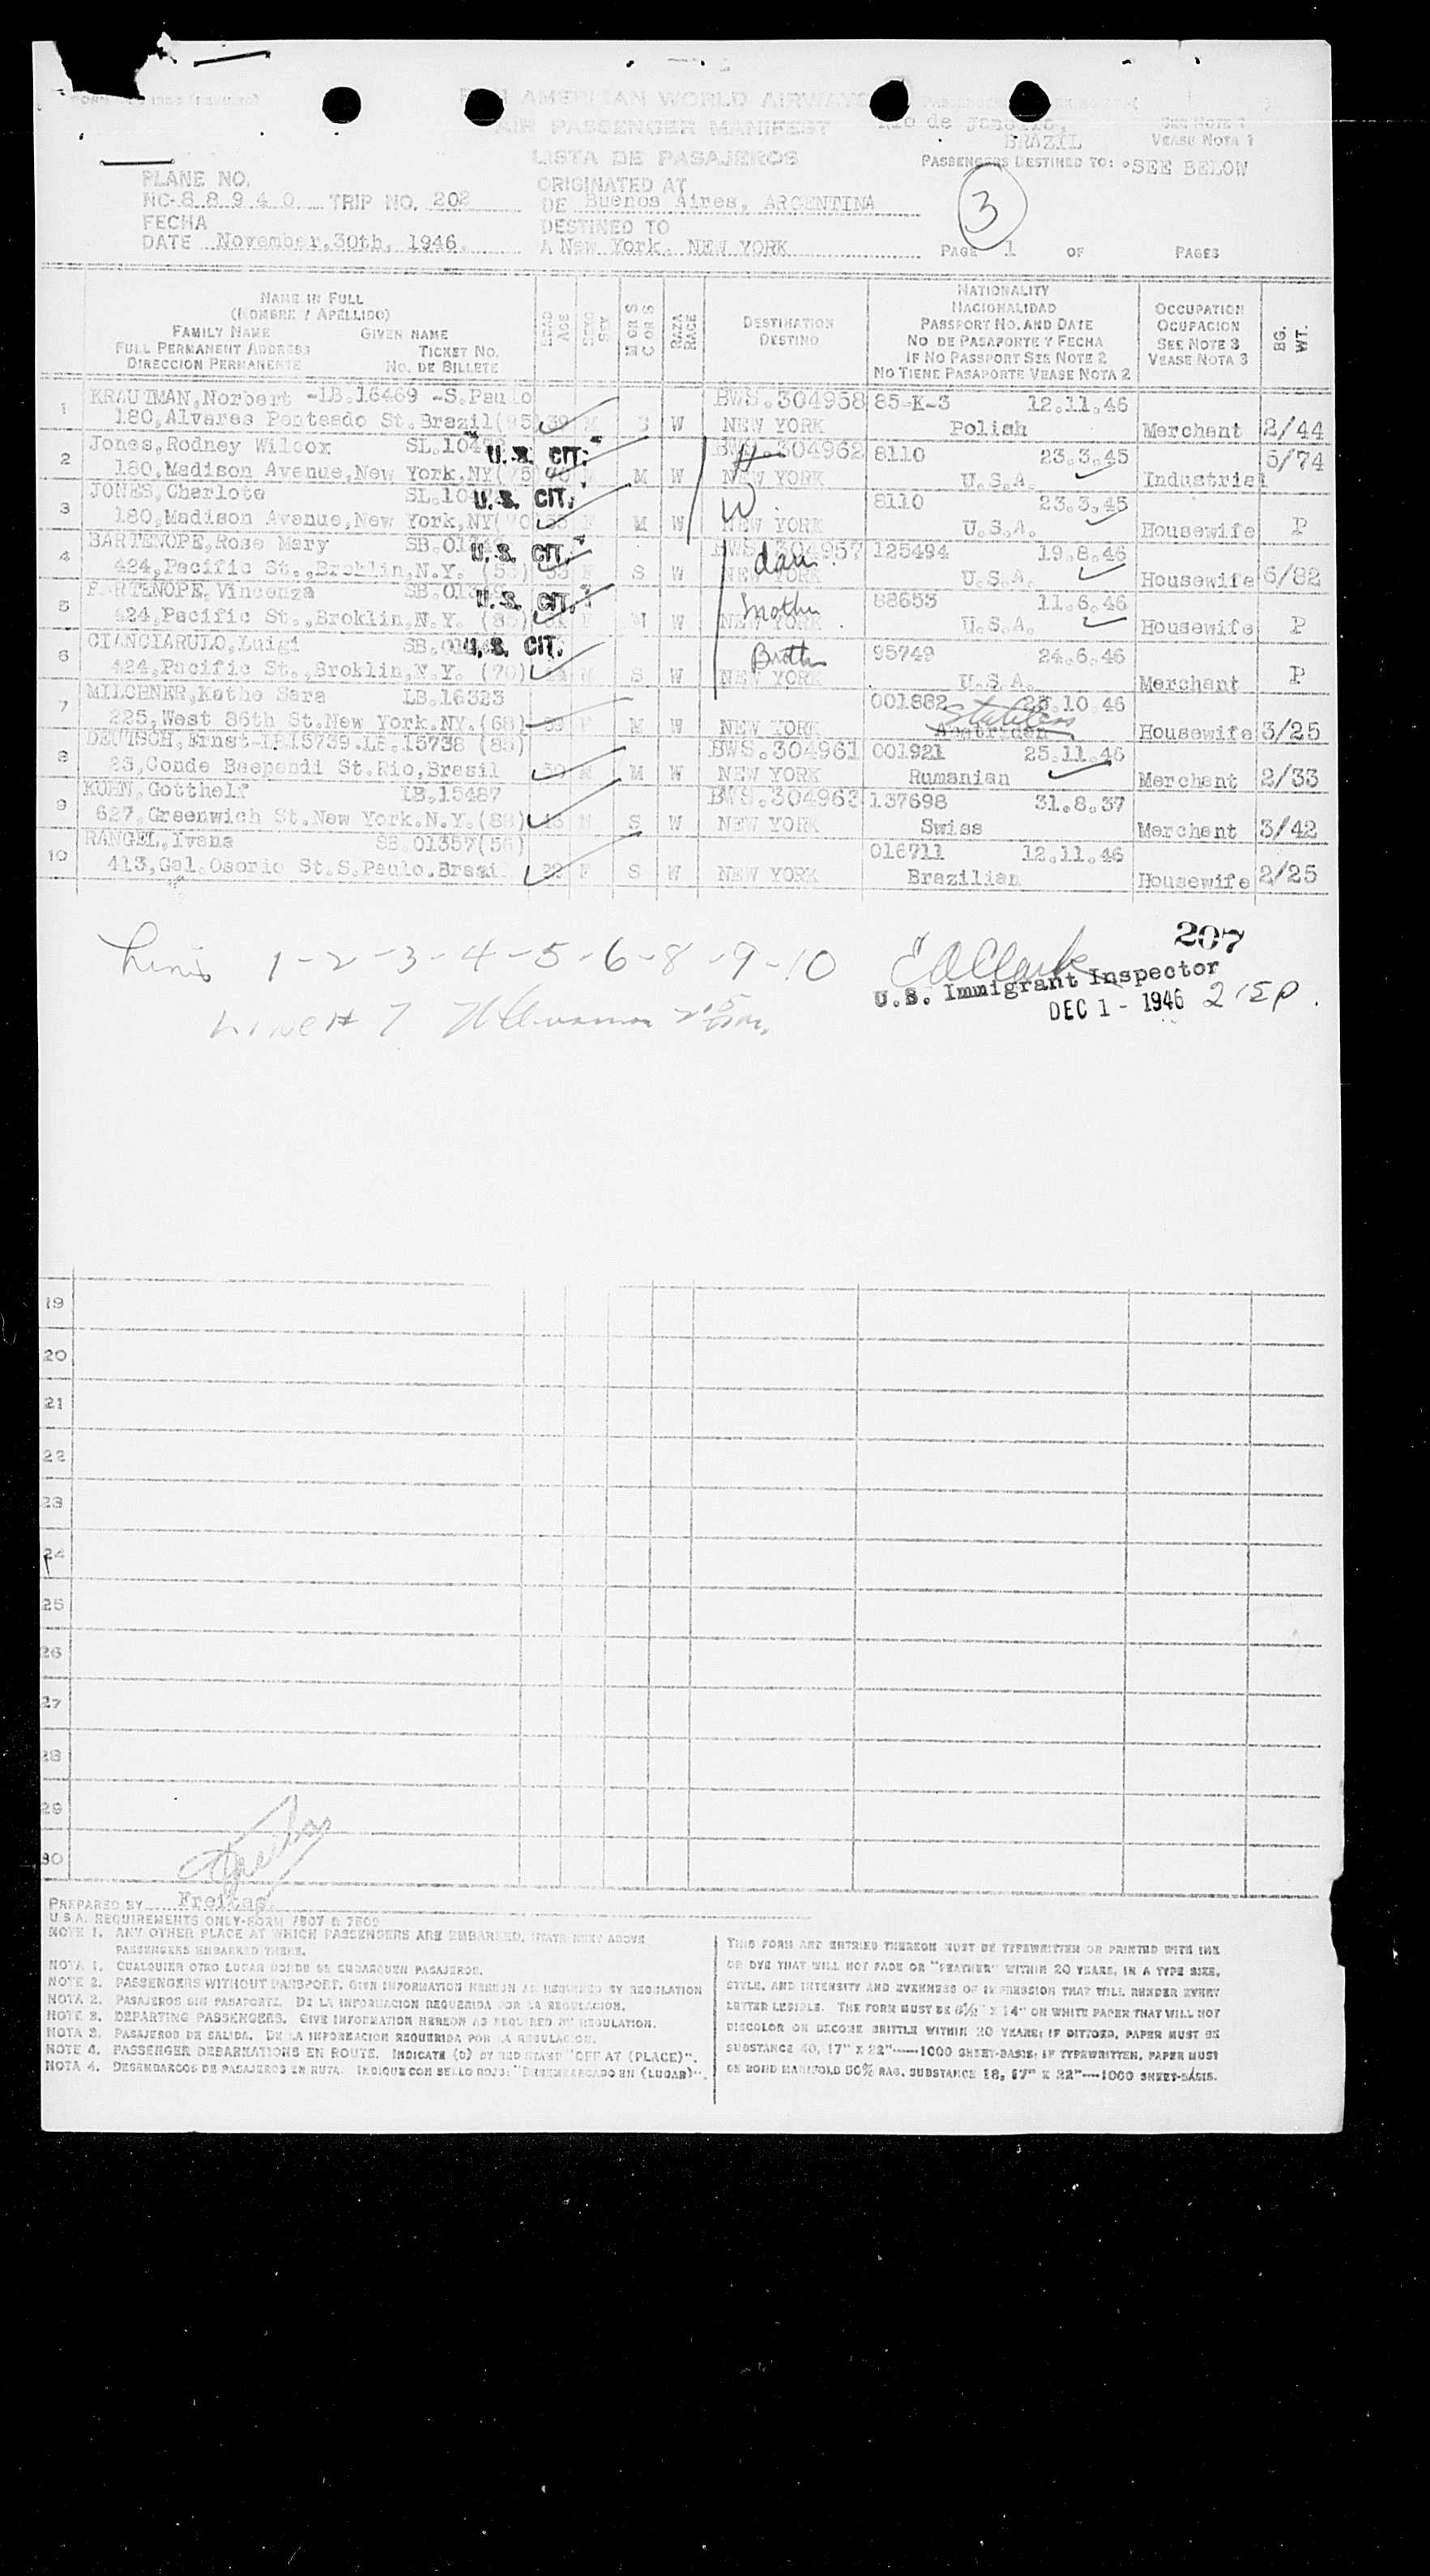 PAN AMERICAN WORLD AIRWAYS
AIR PASSENGER MANIFEST
LISTA DE PASAJEROS
Rio de Janeiro,
BRAZIL
SEE NOTE 1
VEASE NOTA 1
PASSENGERS DESTINED TO: SEE BELOW
PLANE NO.
NC-88940 TRIP NO. 202
FECHA
DATE November,30th, 1946.
ORIGINATED AT
DE Buenos Aires, ARGENTINA
DESTINED TO
A New York. NEW YORK
3
PAGE 1 OF PAGES
NAME IN FULL
(NOMBRE Y APELLIDO)
FAMILY NAME GIVEN NAME
FULL PERMANENT ADDRESS TICKET NO.
DIRECCION PERMANENTE NO. DE BILLETE
EDAD AGE
SEXO SEX
M OR S
C OR S
RAZA RACE
DESTINATION
DESTINO
NATIONALITY
NACIONALIDAD
PASSPORT NO. AND DATE
NO DE PASAPORTE Y FECHA
IF NO PASSPORT SEE NOTE 2
NO TIENE PASAPORTE VEASE NOTA 2
OCCUPATION
OCUPACION
SEE NOTE 3
VEASE NOTA 3
BG. WT.
1 KRAUTMAN, Norbert -LB.16469 -S.Paulo BWS.304958 85-K-3 12.11.46
180,Alvares Penteado St.Brazil(95) 39 M S W NEW YORK Polish Merchant 2/44
2 Jones,Rodney Wilcox U.S. CIT. BWS.304962 8110 23.3.45 5/74
180,Madison Avenue,New York,NY(75) M W H NEW YORK U.S.A. Industrial
3 JONES,Charlote U.S. CIT. W. 8110 23.3.45
180,Madison Avenue,New York,NY F M W NEW YORK U.S.A. Housewife P
4 BARTENOPE,Rose Mary U.S. CIT. BWS.304957 125494 19.8.46
424,Pacific St.,Broklin,N.Y. F S W dau. NEW YORK U.S.A. Housewife 6/82
5 PARTENOPE,Vincenza U.S. CIT. Mother 88653 11.6.46
424,Pacific St.,Broklin,N.Y. (85) F M W NEW YORK U.S.A. Housewife P
6 CIANCIARULO,Luigi U.S. CIT. Broth 95749 24.6.46
424,Pacific St.,Broklin,N.Y. (70) M S W NEW YORK U.S.A. Merchant P
7 MILCHNER,Kathe Sara LB.16323 001882 25.10.46
225,West 86th St.New York.NY.(68) F M W NEW YORK Stateless Housewife 3/25
8 DEUTSCH,Ernst-LB.15739.LB.15738 (85) BWS.304961 001921 25.11.46
23,Conde Baependi St.Rio,Brasil M M W NEW YORK Rumanian Merchant 2/33
9 KOHN,Gotthelf LB.15487 BWS.304963 137698 31.8.37
627,Greenwich St.New York.N.Y.(88) M S W NEW YORK Swiss Merchant 3/42
10 RANGEL,Ivens SB.01357(56) 016711 12.11.46
413,Gal.Osorio St.S.Paulo.Brasil F S W NEW YORK Brazilian Housewife 2/25
Lines 1-2-3-4-5-6-8-9-10
E A Clark
207
U.S. Immigrant Inspector
DEC 1 - 1946
LINE # 7
19
20
21
22
23
24
25
26
27
28
29
30
PREPARED BY Freitas
U.S.A. REQUIREMENTS ONLY-FORM 7507 & 7509
NOTE 1. ANY OTHER PLACE AT WHICH PASSENGERS ARE EMBARKED, STATE NEXT ABOVE
PASSENGERS EMBARKED THERE.
NOTA 1. CUALQUIER OTRO LUGAR DONDE SE EMBARQUEN PASAJEROS.
NOTE 2. PASSENGERS WITHOUT PASSPORT. GIVE INFORMATION HEREON AS REQUIRED BY REGULATION
NOTA 2. PASAJEROS SIN PASAPORTE. DE LA INFORMACION REQUERIDA POR LA REGULACION.
NOTE 3. DEPARTING PASSENGERS. GIVE INFORMATION HEREON AS REQUIRED BY REGULATION.
NOTA 3. PASAJEROS DE SALIDA. DE LA INFORMACION REQUERIDA POR LA REGULACION.
NOTE 4. PASSENGER DEBARKATIONS EN ROUTE. INDICATE (D) BY RED STAMP "OFF AT (PLACE)".
NOTA 4. DESEMBARCOS DE PASAJEROS EN RUTA. INDIQUE CON SELLO ROJO: "DESEMBARCADO EN (LUGAR)".
THIS FORM AND ENTRIES THEREON MUST BE TYPEWRITTEN OR PRINTED WITH INK
OR DYE THAT WILL NOT FADE OR "FEATHER" WITHIN 20 YEARS, IN A TYPE SIZE,
STYLE, AND INTENSITY AND EVENNESS OF IMPRESSION THAT WILL RENDER EVERY
LETTER LEGIBLE. THE FORM MUST BE 8½" X 14" ON WHITE PAPER THAT WILL NOT
DISCOLOR OR BECOME BRITTLE WITHIN 20 YEARS; IF DITTOED, PAPER MUST BE
SUBSTANCE 40, 17" X 22"-----1000 SHEET-BASIS; IF TYPEWRITTEN, PAPER MUST
BE BOND MANIFOLD 50% RAG, SUBSTANCE 18, 17" X 22"----1000 SHEET-BASIS.